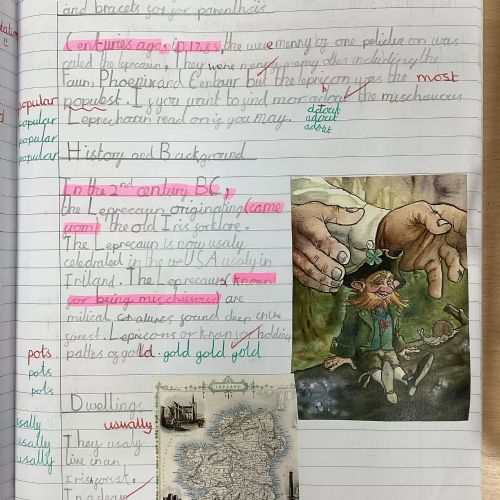 and bracets for for parenthsis
Centuries ago, in 1733, the were menny of one pelidie on was
called the leprecaun. They were meny
Faun, Phoenix and Centaur but the lepricon was the most
popular
populest. If you want to find mor adout the mischievous
about
about
about
popular
popular
popular
Leprechaun read on if you may.
History and Background
In the 2nd century BC,
the Leprecaun originating (came
from) the old Iris forklore.
The Leprecaun is now usaly
celedrated in the USA usaly in
Irland. The Leprecauns (known
for being mischievous) are
mitical creatures found deep in the
forest. Lepricons or known for holding
pattes of gold. gold gold gold
pots
pots
pots
Dwellings
usually
usally
usally
usally
They usaly
live in an
Irish forest.
In a
IRELAND